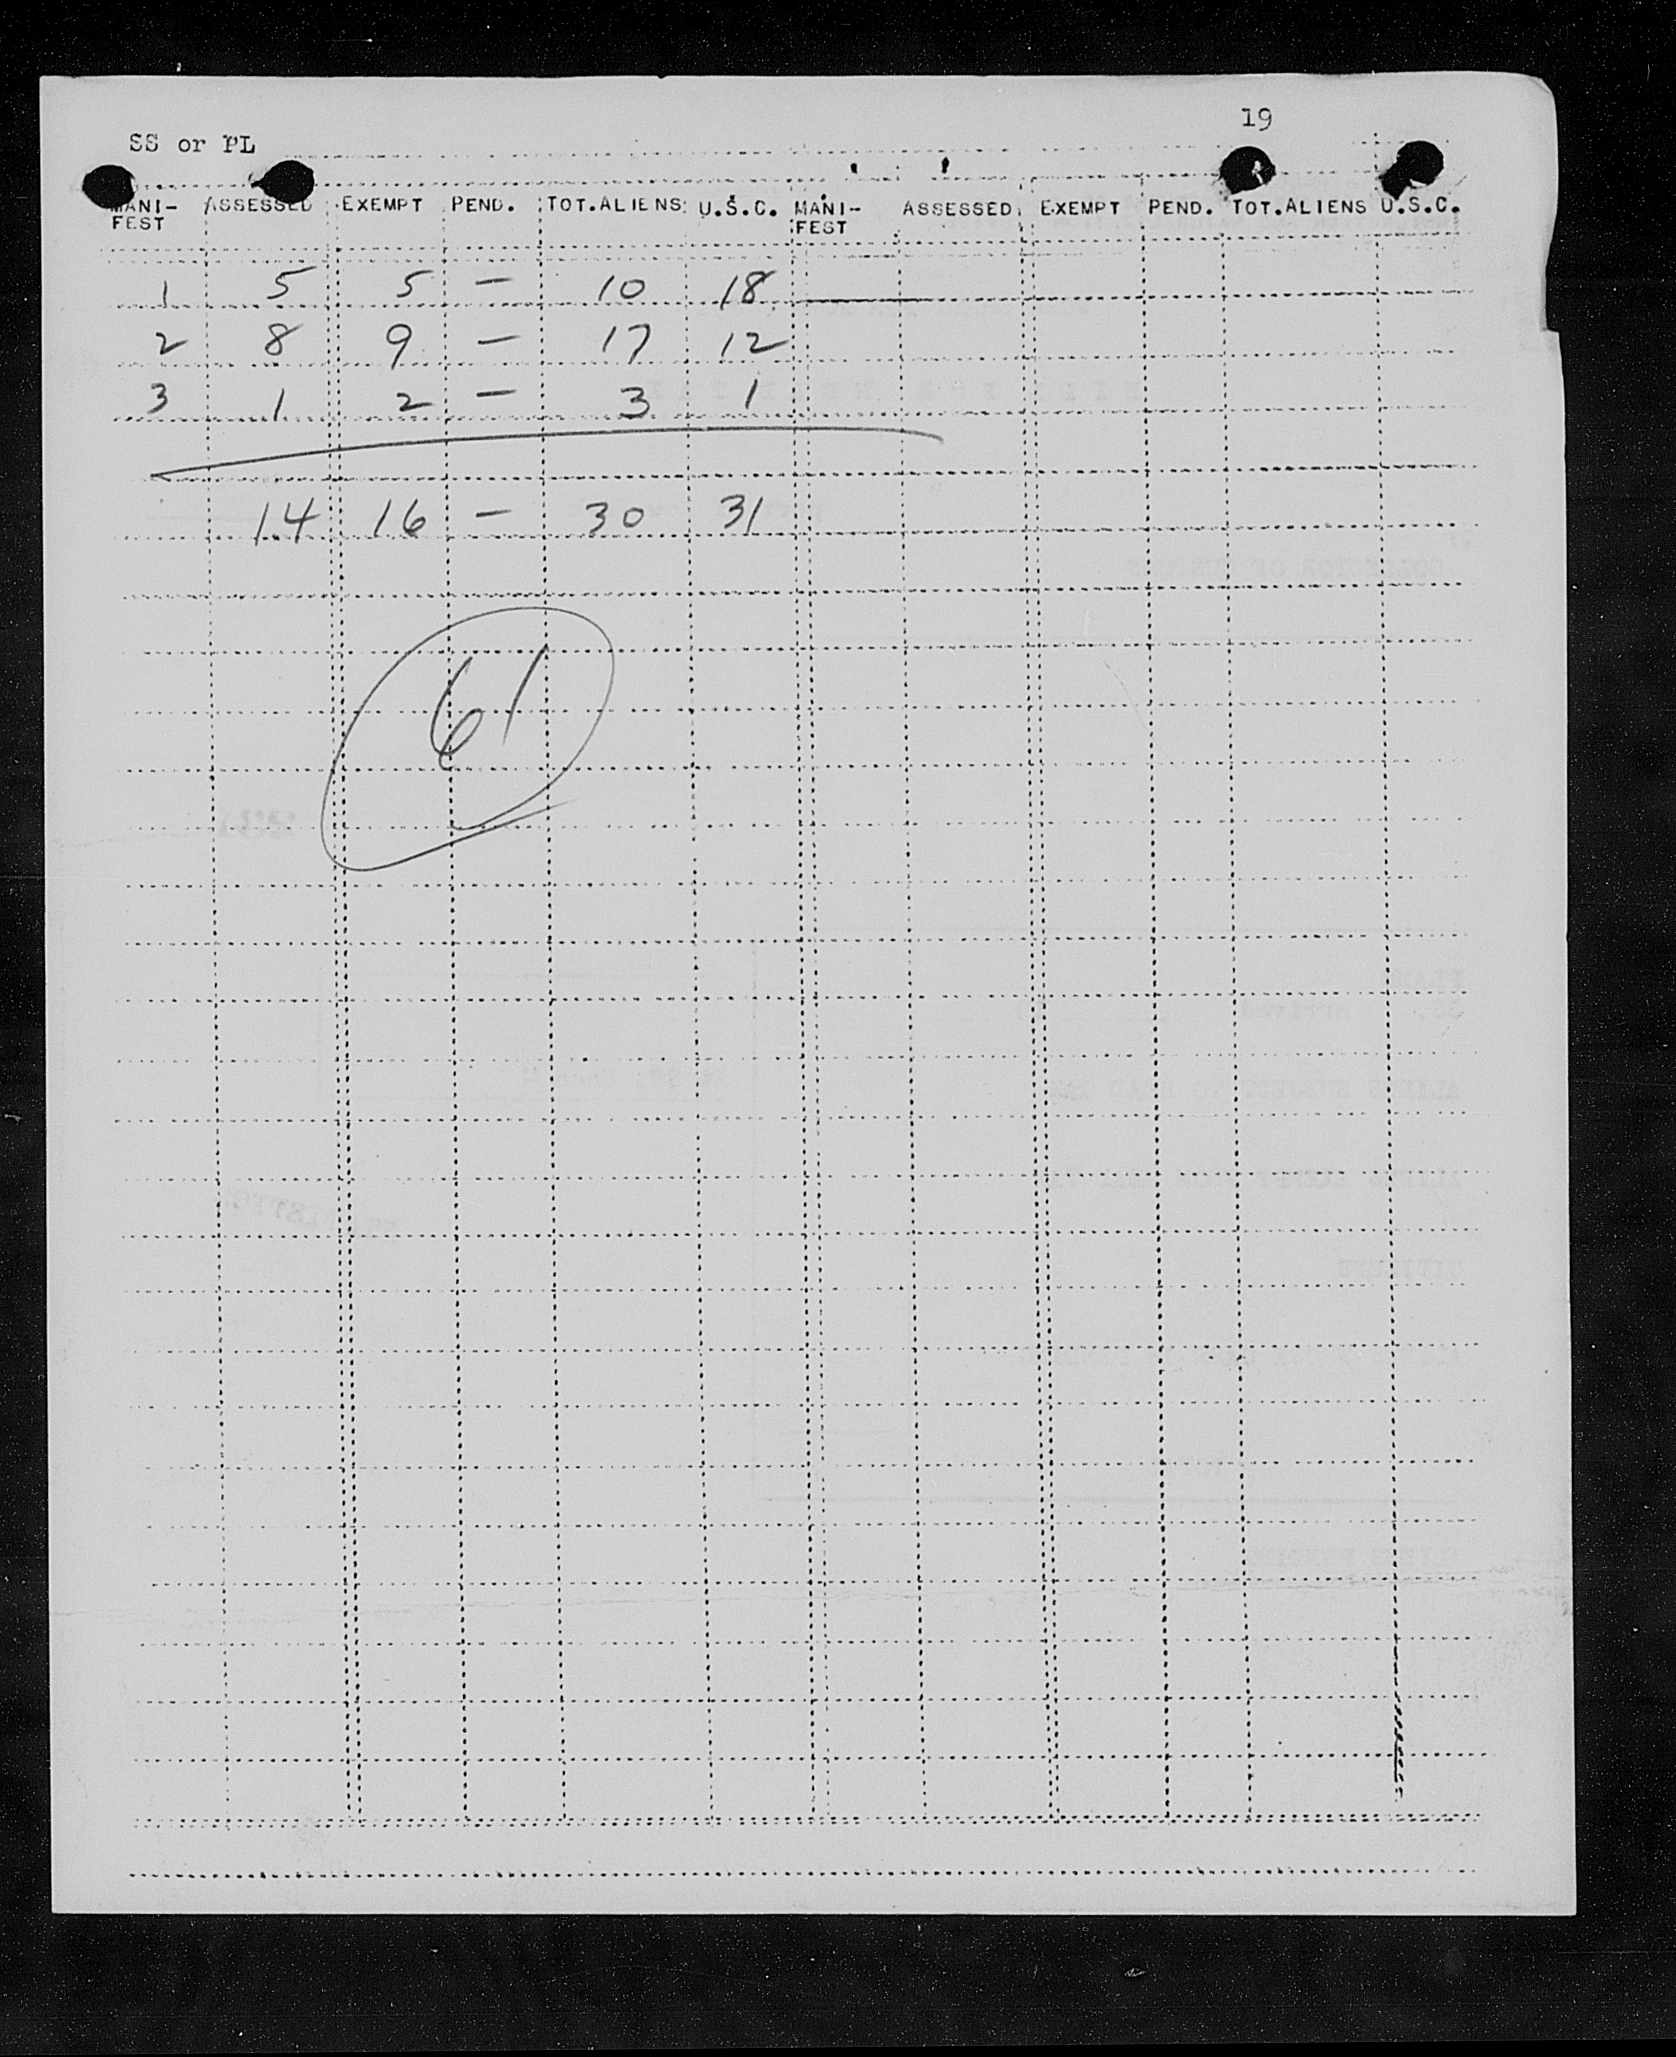 19
SS or PL
MANI-FEST ASSESSED EXEMPT PEND. TOT.ALIENS U.S.C. MANI-FEST ASSESSED EXEMPT PEND. TOT.ALIENS U.S.C.
1 5 5 — 10 18
2 8 9 — 17 12
3 1 2 — 3 1
14 16 — 30 31
61